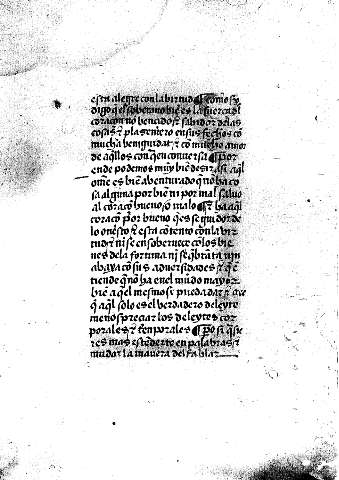 esta alegre con la birtud ¶ como sy
digo q̃ el soberano biẽ es la fuerça dl
coraçon no bencido ⁊ sabidor delas
cosas ⁊ plasentero en sus fechos cõ
mucha benignidat ⁊ cõ mucho amor
de aq̃llos con q̃en conuersa ¶ por
ende podemos muy biẽ desir asi aq̃l
om̃e es biẽ aventurado q̃ nõ ha co
sa alguna por biẽ ni por mal saluo
al coraçõ bueno o malo ¶ ⁊ ha aq̃l
coraçõ por bueno q̃ es seguidor de
lo onesto ⁊ esta cõtento con la bir
tud ⁊ ni se ensoberuece cõ los bie
nes dela fortuna nj se q̃brãta nin
abaxa cõ sus adversidades ⁊ q̃
tiende q̃ no ha en el mũdo mayor
biẽ a q̃l mesmo se pueda dar ⁊ cree
q̃ aq̃l solo es el berdadero deleyte
menospreciar los deleytes cor
porales ⁊ tenporales ¶ po si q̃sie
res mas estẽderte en palabras ⁊
mudar la manera del fablar